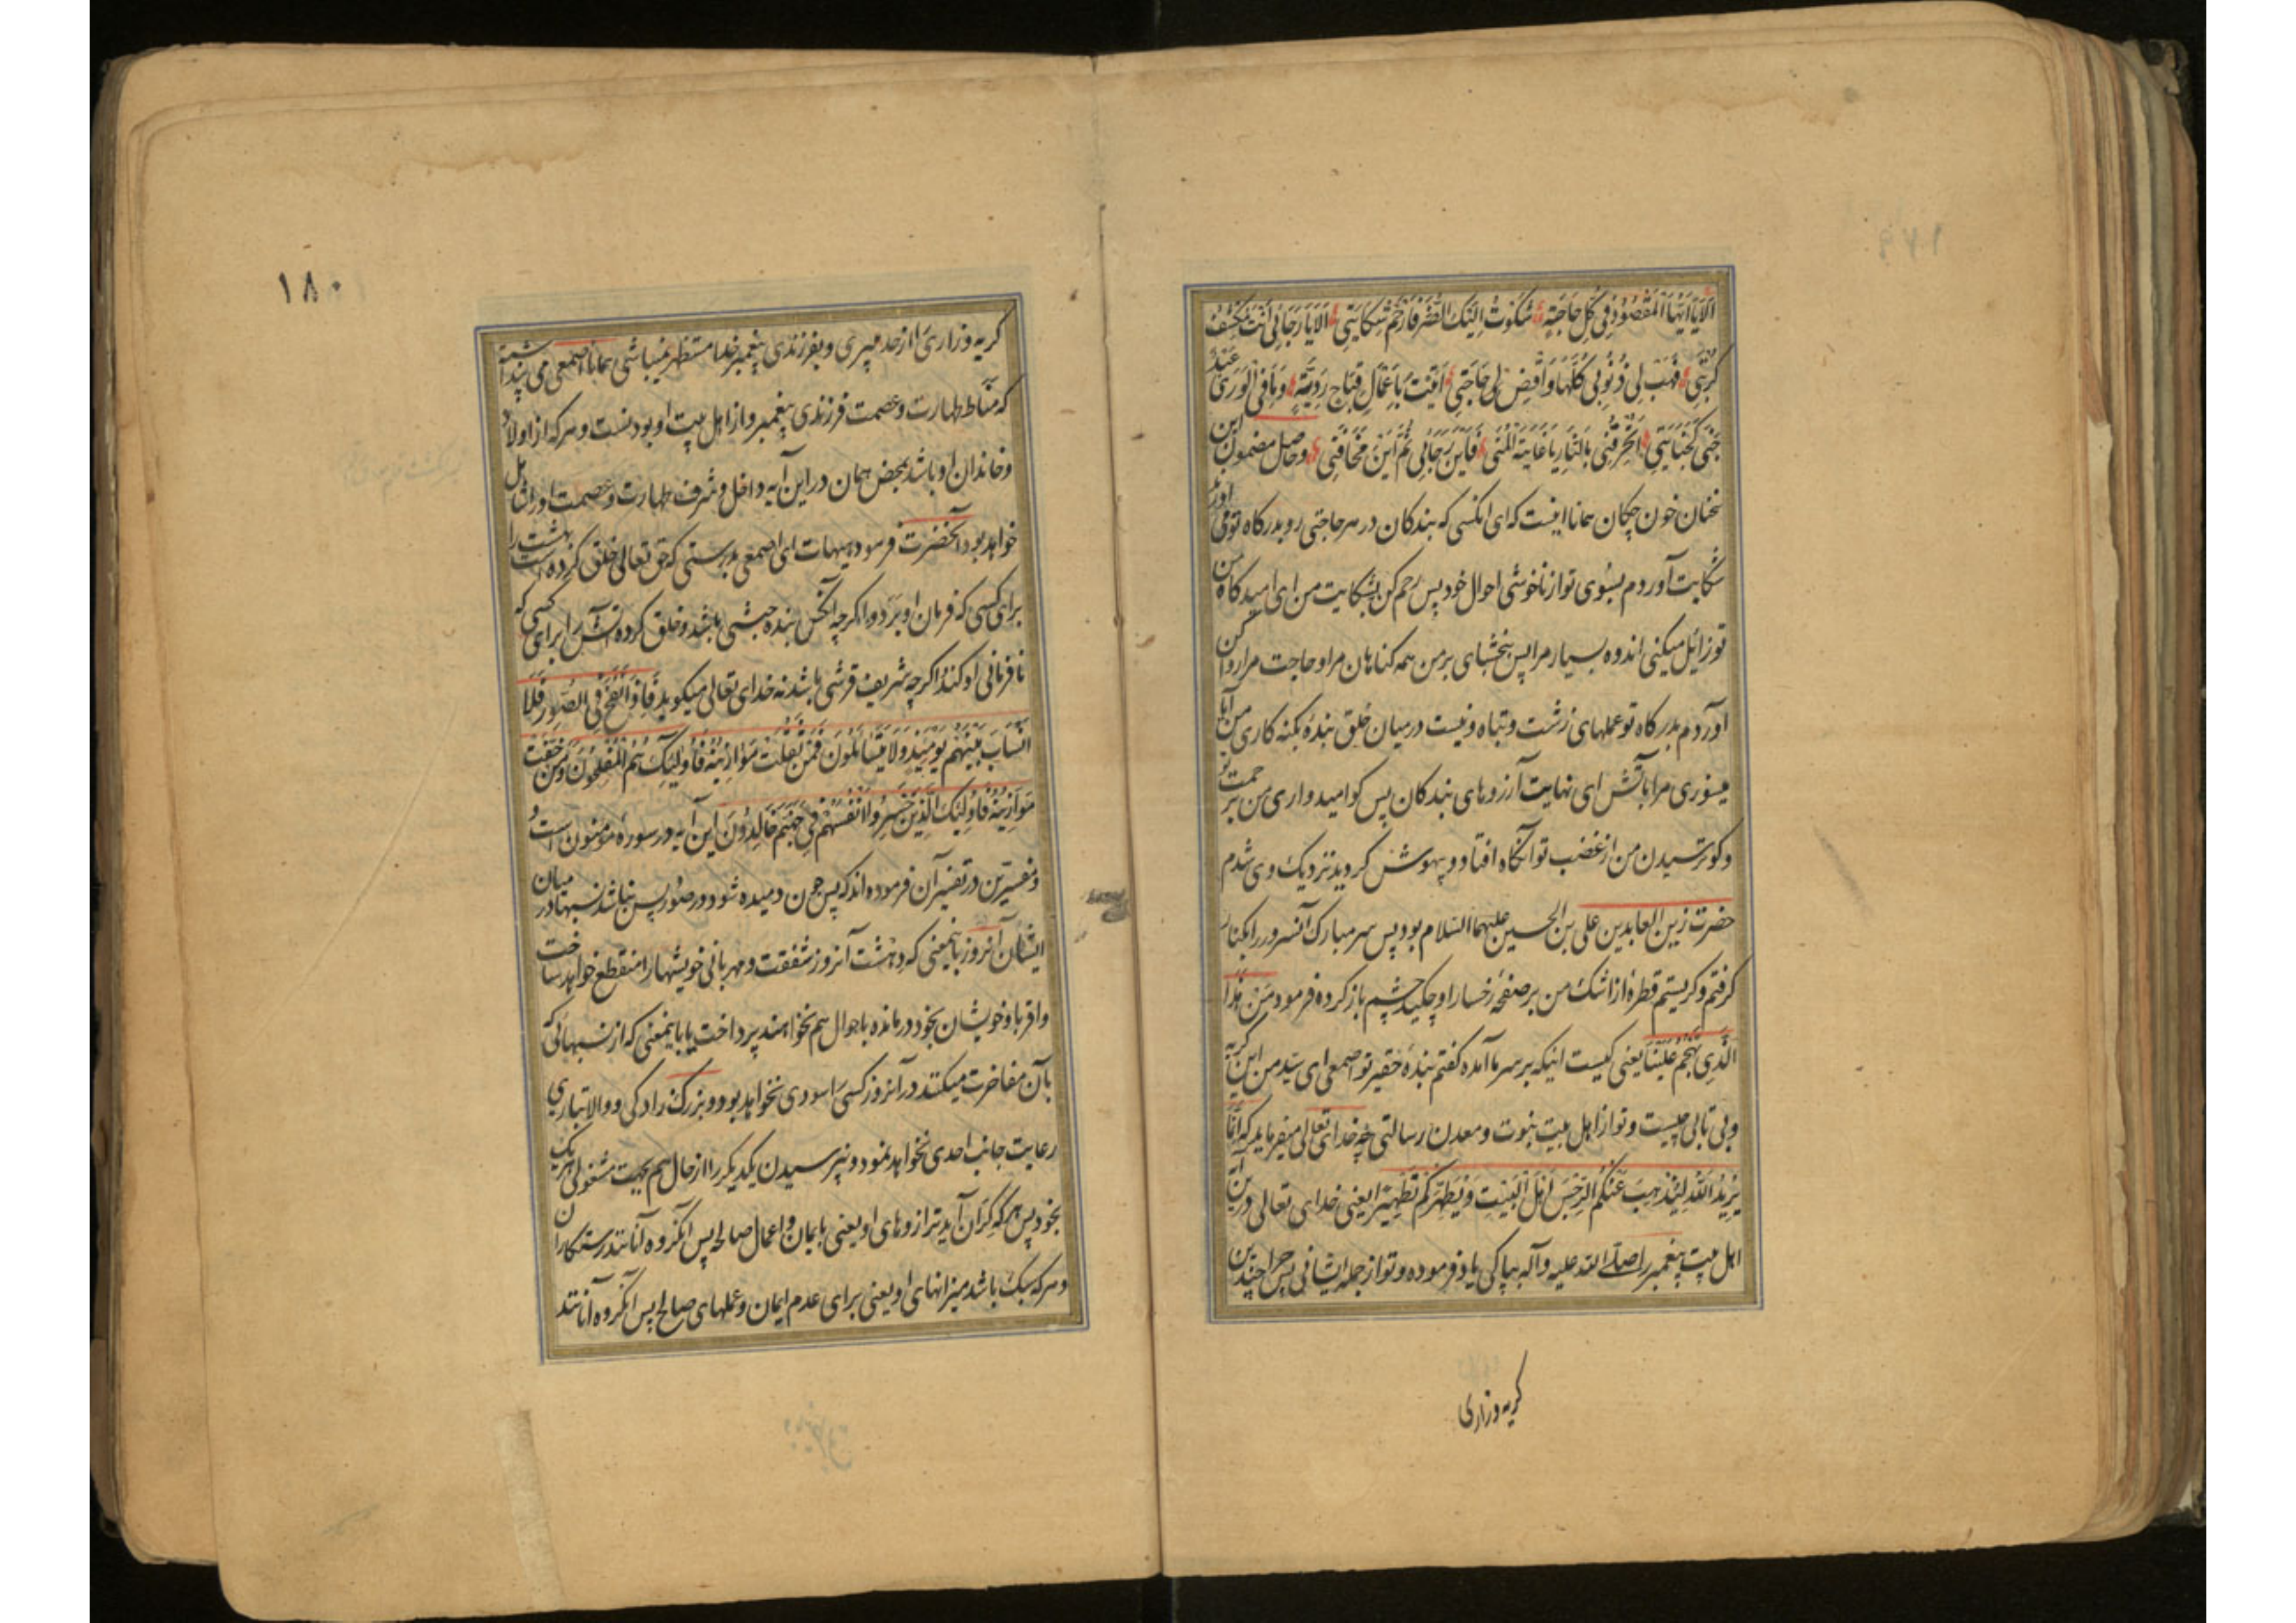 اَلَا يَا اَيُّهَا الْمَقْصُوْدُ فِي كُلِّ حَاجَةٍ شَكَوْتُ اِلَيْكَ الضُّرَّ فَارْحَمْ شِكَايَتِي اَلَا يَا رَجَائِي اَنْتَ تَكْشِفُ
كُرْبَتِي فَهَبْ لِي ذُنُوْبِي كُلَّهَا وَاقْضِ لِي حَاجَتِي اَتَيْتُ بِاَعْمَالٍ قِبَاحٍ رَدِيَّةٍ وَمَا فِي الْوَرَى عَبْدٌ
جَنَى كَجِنَايَتِي اَتُحْرِقُنِي بِالنَّارِ يَا غَايَةَ الْمُنَى فَاَيْنَ رَجَائِي ثُمَّ اَيْنَ مَخَافَتِي وحاصل مضمون این
سخنان خون چکان همانا اینست که ای انکسی که بندکان در هر حاجتی رو بدرکاه تو می اورند
شکایت آوردم بسوی تو از ناخوشی احوال خود پس رحم کن بشکایت من ای امیدکاه من
تو زائل میکنی اندوه بسیار مرا پس ببخشای بر من همه کناهان مرا و حاجت مرا روا کن
آوردم بدرکاه تو عملهای زشت و تباه و نیست در میان خلق بندۀ بکنه کاری من آیا
میسوزی مرا بآتش ای نهایت آرزوهای بندکان پس کو امیدواری من بر حمت تو
و کو ترسیدن من از غضب تو آنکاه افتاد و بیهوش کردید نزدیک وی شدم
حضرت زین العابدین علی بن الحسین علیهما السلام بود پس سر مبارک آنسرور را بکنار
کرفتم و کریستم قطرۀ از اشک من بر صفحۀ رخسار او چکید چشم باز کرده فرمود مَنْ هٰذَا
الَّذِي تَهَجَّمَ عَلَيْنَا یعنی کیست اینکه بر سر ما آمده کفتم بندۀ حقیر تو اصمعی ای سید من این کریه
و بی تابی چیست و تو از اهل بیت نبوت و معدن رسالتی چه خدای تعالی میفرماید که اِنَّمَا
يُرِيْدُ اللّٰهُ لِيُذْهِبَ عَنْكُمُ الرِّجْسَ اَهْلَ الْبَيْتِ وَيُطَهِّرَكُمْ تَطْهِيْرًا یعنی خدای تعالی در این آیه
اهل بیت پیغمبر را صلی الله علیه وآله بپاکی یاد فرموده و تو از جمله ایشانی پس چرا چندین
کریه وزاری
۱۸۰
کریه و زاری را از حد میبری و بفرزندی پیغمبر خدا مستظهر نمیباشی همانا اصمعی می پنداشته
که مناط طهارت و عصمت فرزندی پیغمبر و از اهل بیت او بودنست و هر که از اولاد
و خاندان او باشد بمحض همان در این آیه داخل و شرف طهارت و عصمت او را شامل
خواهد بود آنحضرت فرمود هیهات ای اصمعی بدرستی که حق تعالی خلق کرده است بهشت را
برای کسی که فرمان او برد و اکرچه آنکس بندۀ حبشی باشد و خلق کرده آتش را برای کسی که
نافرمانی او کند اکرچه شریف قرشی باشد نه خدای تعالی میکوید فَاِذَا نُفِخَ فِي الصُّوْرِ فَلَا
اَنْسَابَ بَيْنَهُمْ يَوْمَئِذٍ وَلَا يَتَسَائَلُوْنَ فَمَنْ ثَقُلَتْ مَوَازِيْنُهُ فَاُولٰئِكَ هُمُ الْمُفْلِحُوْنَ وَمَنْ خَفَّتْ
مَوَازِيْنُهُ فَاُولٰئِكَ الَّذِيْنَ خَسِرُوْا اَنْفُسَهُمْ فِي جَهَنَّمَ خَالِدُوْنَ این آیه در سورۀ مؤمنون است و
و مفسرین در تفسیر آن فرموده اند که پس چون دمیده شود در صور پس نباشد نسبها در میان
ایشان آنروز باینمعنی که دهشت آنروز شفقت و مهربانی خویشها را منقطع خواهد ساخت
و اقربا و خویشان بخود درمانده باحوال هم نخواهند پرداخت یا باینمعنی که از نسبهائی که
بآن مفاخرت میکنند در آنروز کسی را سودی نخواهد بود و بزرک زادکی و والا تباری
رعایت جانب احدی نخواهد نمود و نپرسیدن یکدیکر را از حال هم بجهت مشغولی هر یک
بخود پس هر که کران آید ترازوهای او یعنی بایمان و اعمال صالحه پس آنکروه آنانند رستکاران
و هر که سبک باشد میزانهای او یعنی برای عدم ایمان و عملهای صالح پس آنکروه آنانند